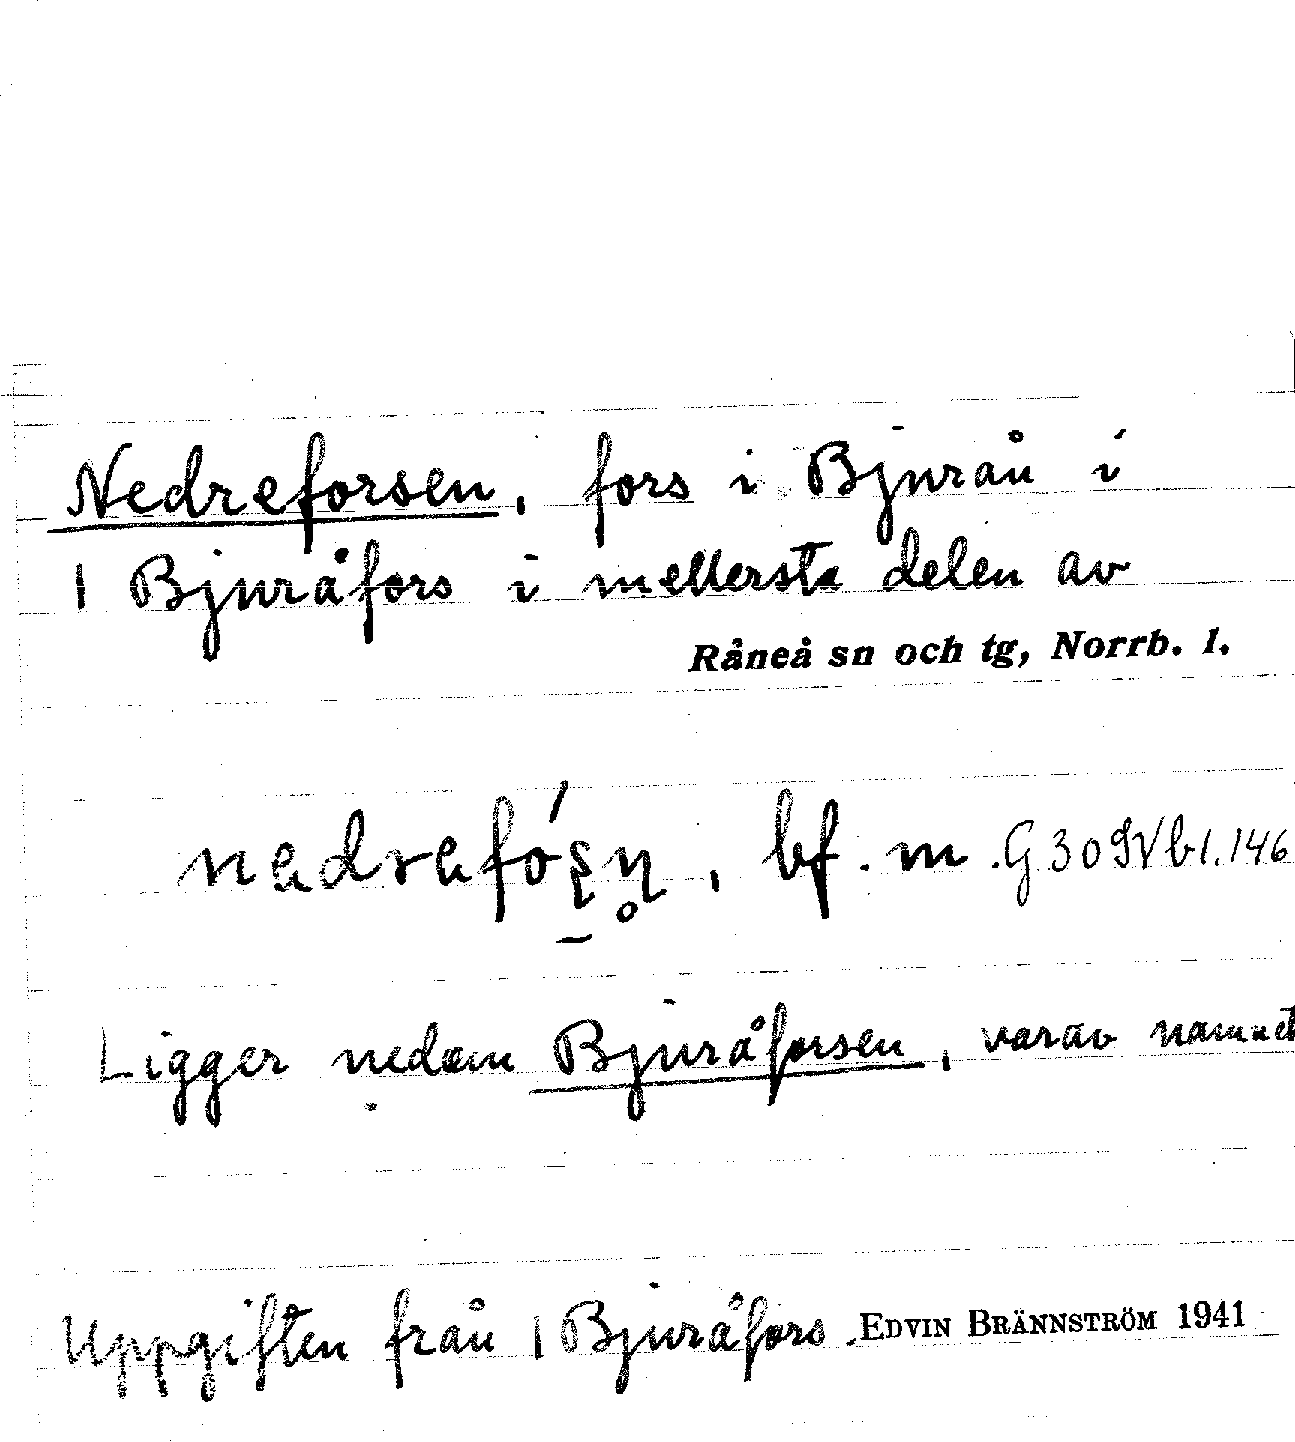 Nedreforsen, fors i Bjurån i
1 Bjuråfors i mellersta delen av
Råneå sn och tg, Norrb. l.
bf. m. G 30 IV bl. 146
Ligger nedom Bjuråforsen, varav namnet
Uppgiften från 1 Bjuråfors. EDVIN BRÄNNSTRÖM 1941